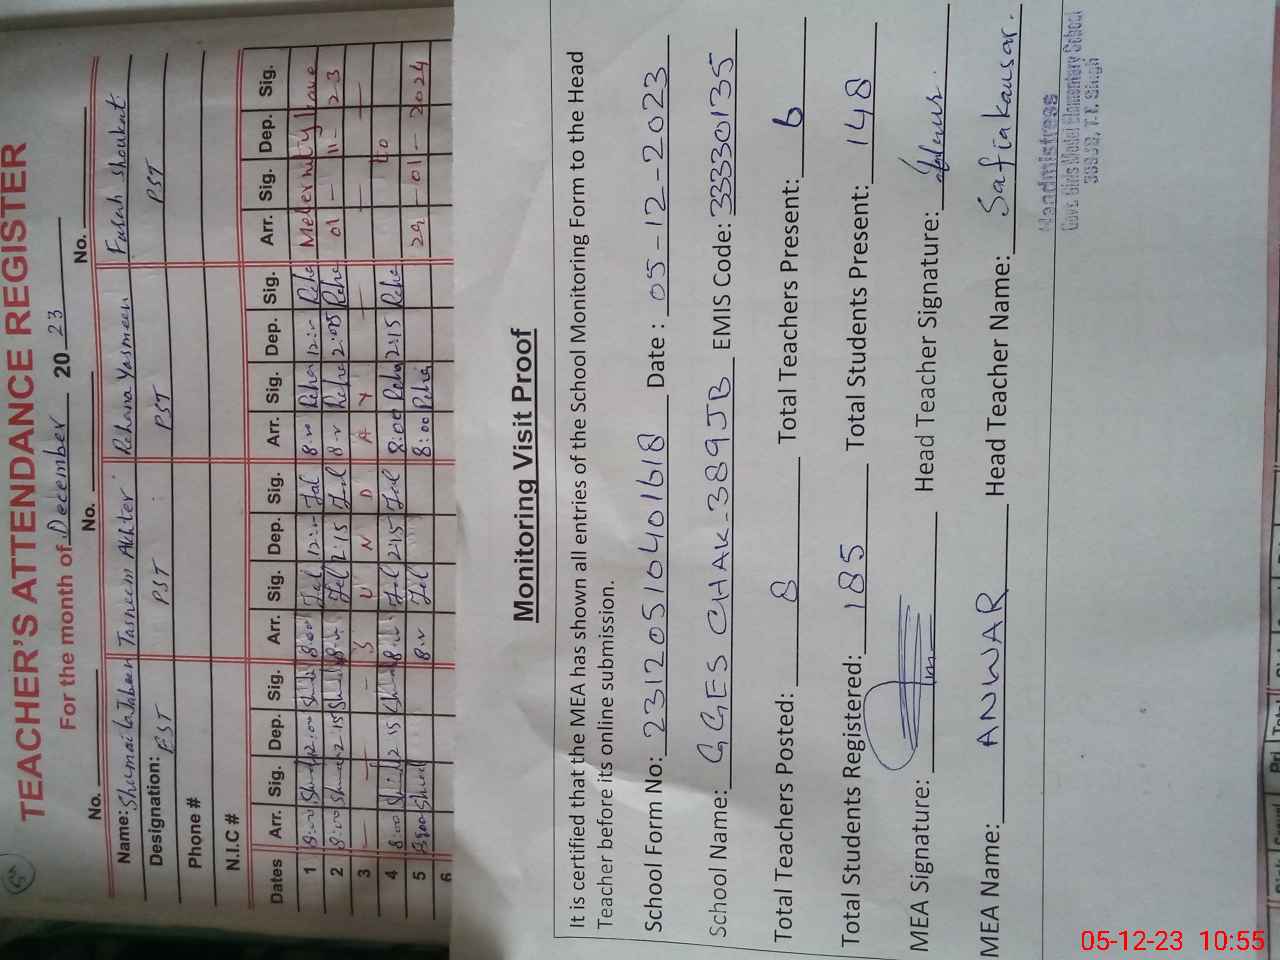 TEACHER'S ATTENDANCE REGISTER
For the month of December 2023
No. No. No. No.
Name: Shumaila Jabeen Tasneem Akhter Rehana Yasmeen Farah Shoukat
Designation: EST PST PST PST
Phone #
N.I.C #
Dates Arr. Sig. Dep. Sig. Arr. Sig. Dep. Sig. Arr. Sig. Dep. Sig. Arr. Sig. Dep. Sig.
1 8:00 12:00 8:00 12:00 8:00 Reha 12:00 Reha Meternity leave
2 8:00 2:15 2:15 Reha 2:05 Reha 01 - 11 - 23
3 S U N D A Y
4 8:00 2:15 2:15 8:00 Reha 2:15 Reha to
5 8:00 Reha 29 - 01 - 2024
6
Monitoring Visit Proof
It is certified that the MEA has shown all entries of the School Monitoring Form to the Head
Teacher before its online submission.
School Form No: 231205104401618 Date : 05-12-2023
School Name: GGES CHAK-389JB EMIS Code: 33330135
Total Teachers Posted: 8 Total Teachers Present: 6
Total Students Registered: 185 Total Students Present: 148
MEA Signature: Head Teacher Signature:
MEA Name: ANWAR Head Teacher Name: Safia kausar.
Headmistress
Govt. Girls Model Elementary School
389JB, T.T. Singh
05-12-23 10:55